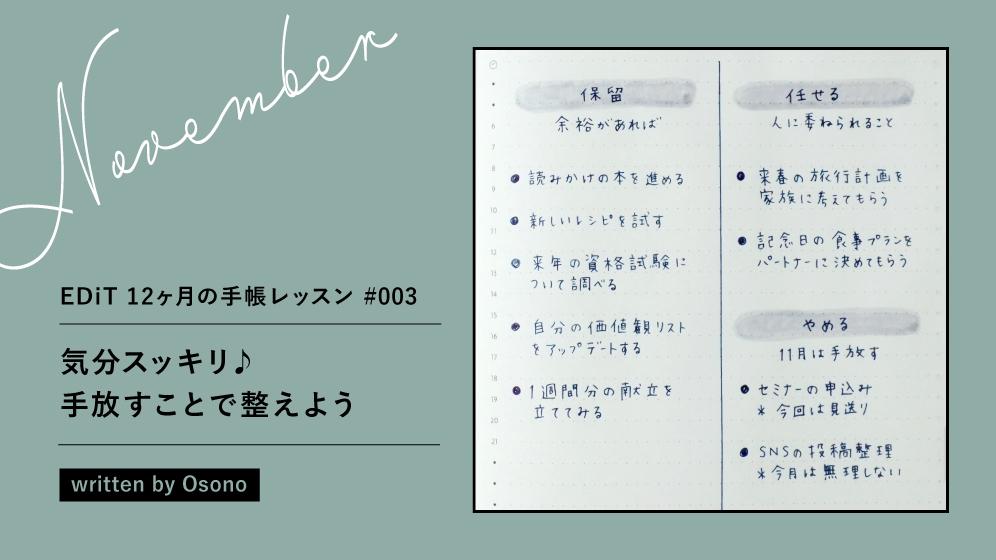 November
EDiT 12ヶ月の手帳レッスン #003
気分スッキリ♪
手放すことで整えよう
written by Osono
保留
余裕があれば
6
7
8
9
10
11
12
13
14
15
16
17
18
19
20
21
● 読みかけの本を進める
● 新しいレシピを試す
● 来年の資格試験に
ついて調べる
● 自分の価値観リスト
をアップデートする
● 1週間分の献立を
立ててみる
任せる
人に委ねられること
● 来春の旅行計画を
家族に考えてもらう
● 記念日の食事プランを
パートナーに決めてもらう
やめる
11月は手放す
● セミナーの申込み
* 今回は見送り
● SNSの投稿整理
* 今月は無理しない